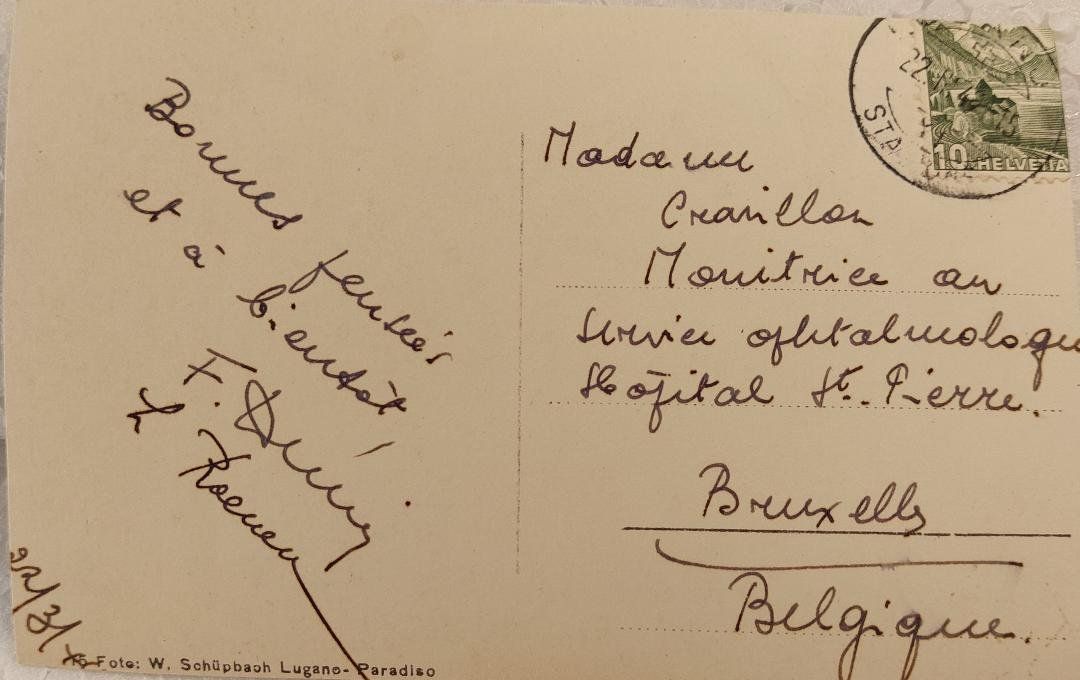 Bonnes pensées
et à bientôt
F.
L Roenen
22/3/
Foto: W. Schüpbach Lugano-Paradiso
Madame
Cravillon
Monitrice au
Service ophtalmologiqu
Hôpital St. Pierre.
Bruxelles
Belgique.
22.
STA
10 HELVETIA